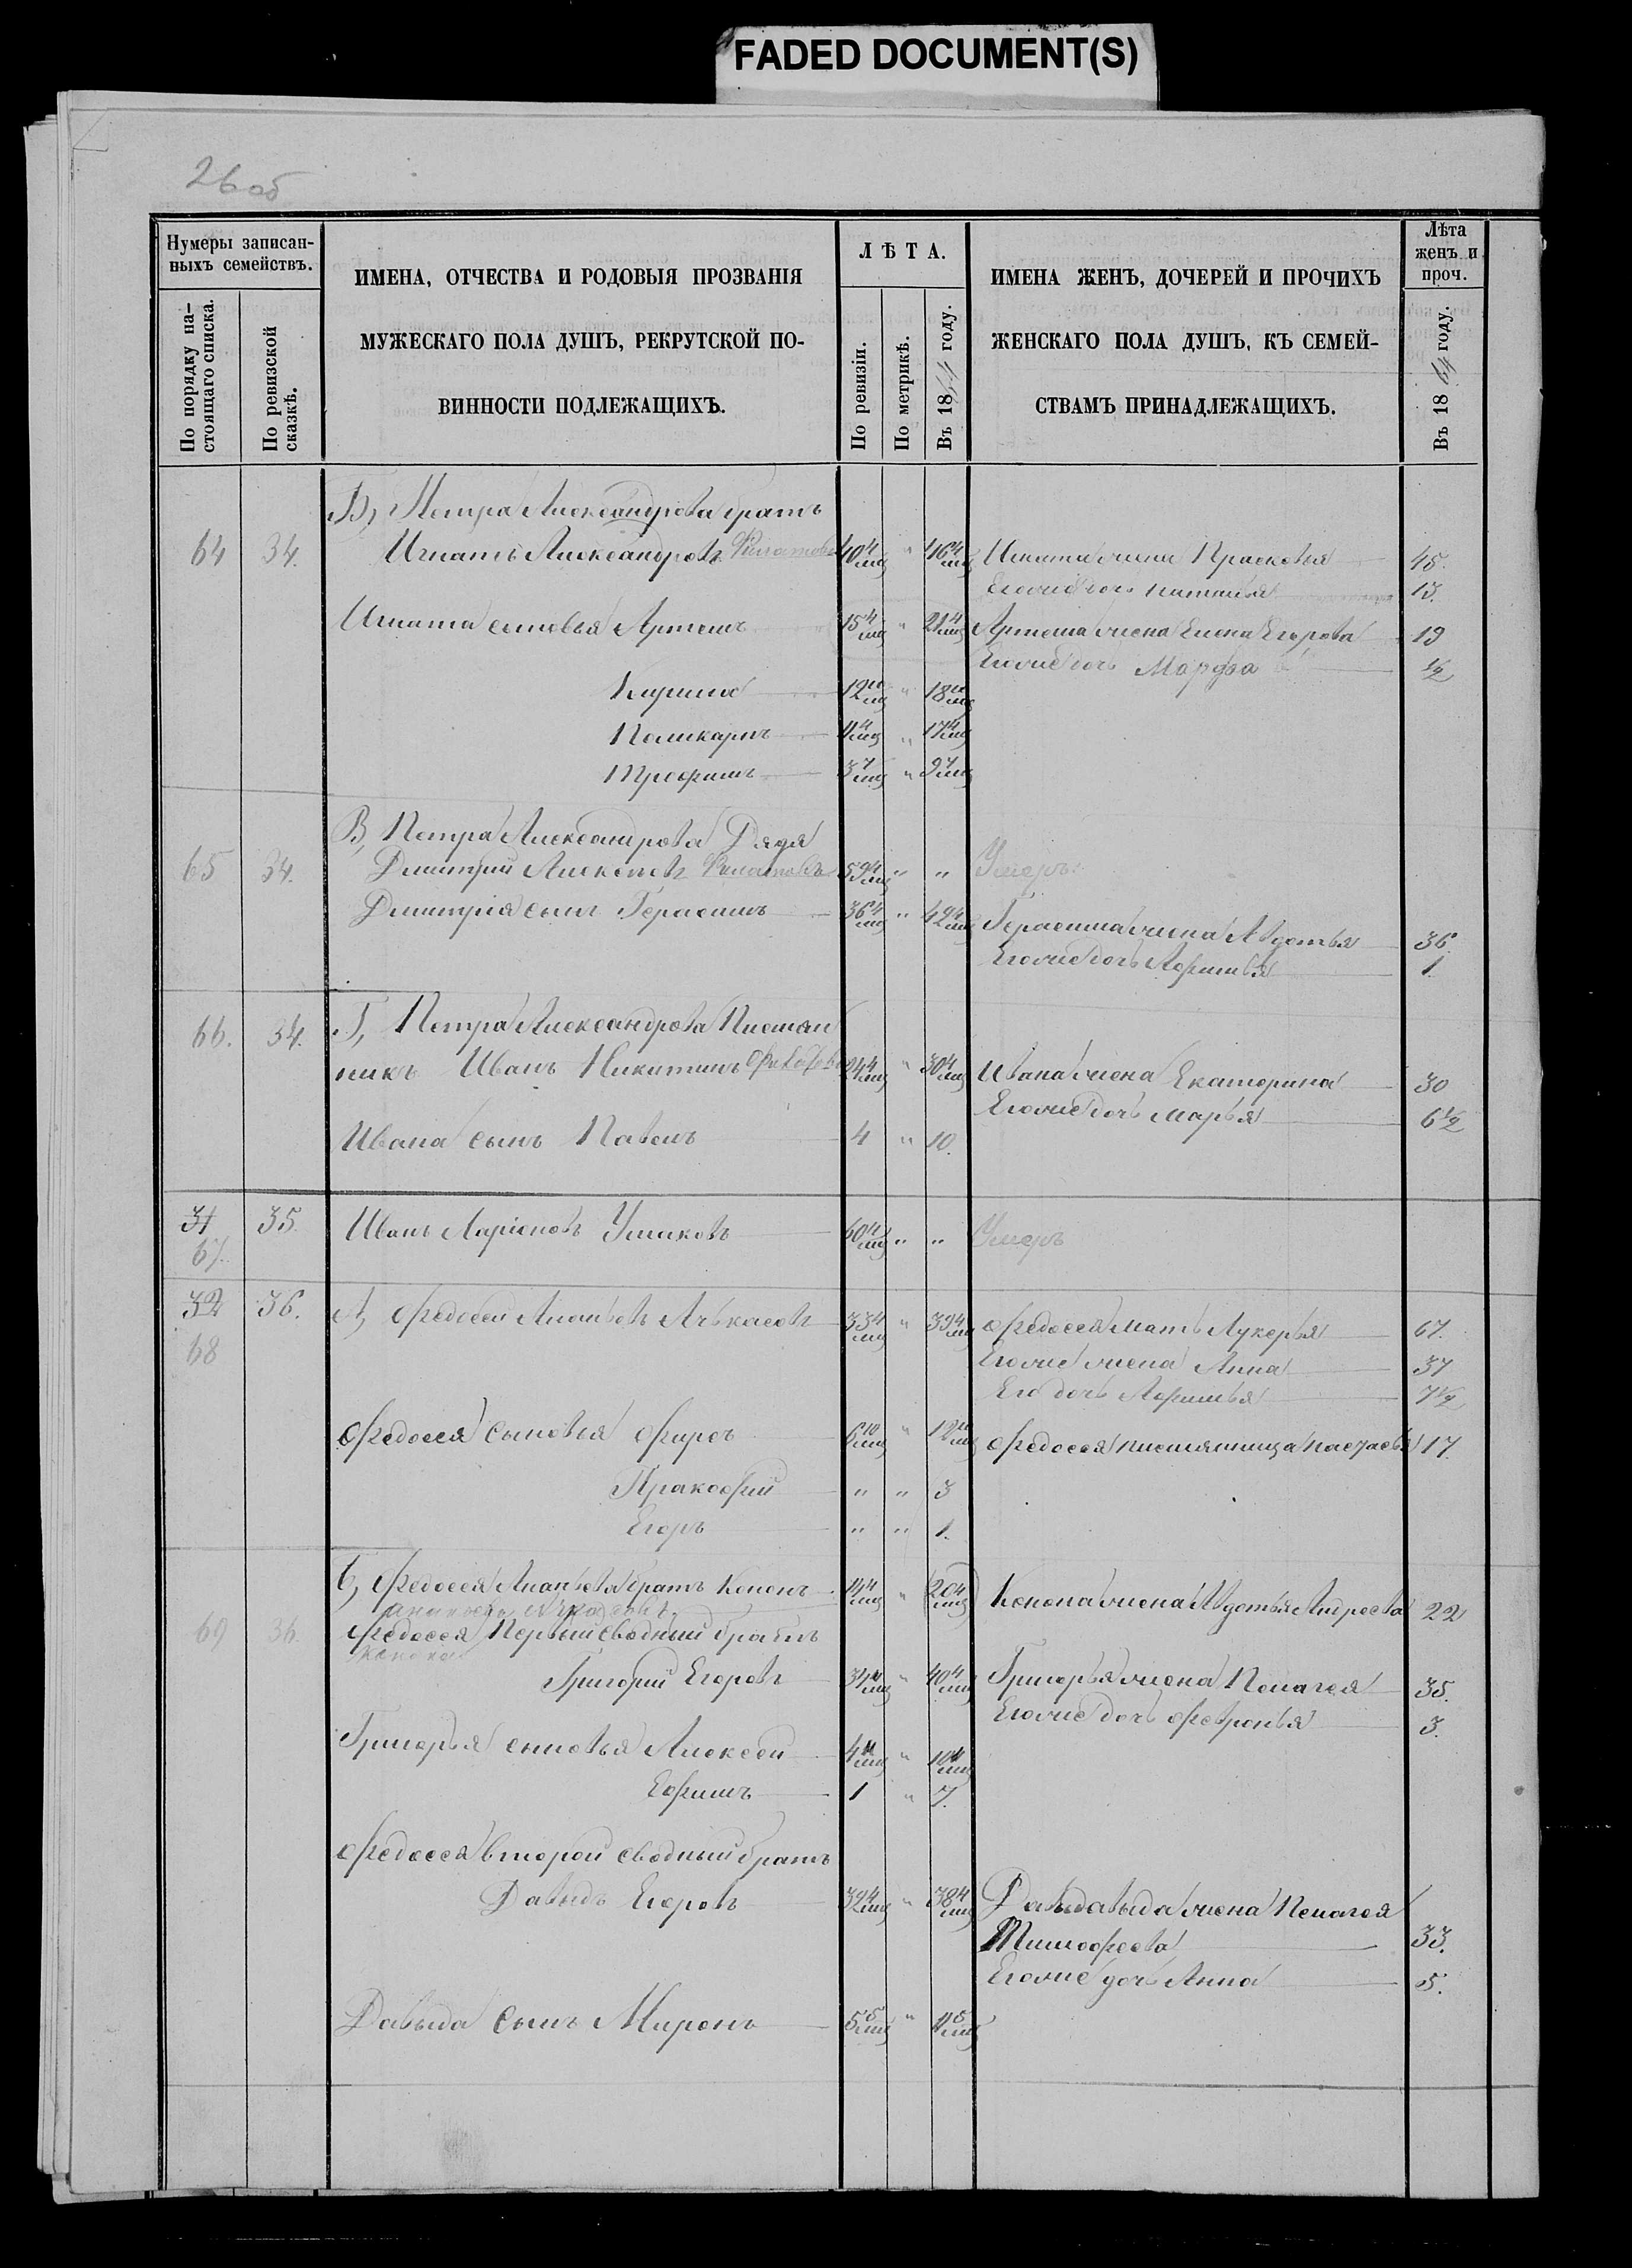 FADED DOCUMENT(S)
26 об
Нумеры записан-
ныхъ семействъ.
По порядку на-
стоящаго списка.
По ревизской
сказкѣ.
ИМЕНА, ОТЧЕСТВА И РОДОВЫЯ ПРОЗВАНІЯ
МУЖЕСКАГО ПОЛА ДУШЪ, РЕКРУТСКОЙ ПО-
ВИННОСТИ ПОДЛЕЖАЩИХЪ.
ЛѢТА.
По ревизіи.
По метрикѣ.
Въ 1864 году.
ИМЕНА ЖЕНЪ, ДОЧЕРЕЙ И ПРОЧИХЪ
ЖЕНСКАГО ПОЛА ДУШЪ, КЪ СЕМЕЙ-
СТВАМЪ ПРИНАДЛЕЖАЩИХЪ.
Лѣта
женъ и
проч.
Въ 1864 году.
Петра Александрова братъ
64 34. Игнатъ Александровъ 40 4/мц " 46 4/мц Игната жена Прасковья 45.
Егоже дочь Наталья 13.
Игната сыновья Артемъ 15 4/мц " 21 4/мц Артема жена Елена Егорова 19
Егоже дочь Марфа 1/2
Кирила 12 " 18
Поликарпъ " 17 4/мц
Трофимъ 3 " 9
В, Петра Александрова Дядя
65 34. Дмитрий Алексѣевъ 59 4/мц " " Умеръ
Дмитрія сынъ Герасимъ 36 4/мц " 42 4/мц Герасима жена Авдотья 36.
Егоже дочь Афимья 1.
66. 34. Г, Петра Александрова Племян
никъ Иванъ Никитинъ 24 4/мц " 30 4/мц Ивана жена Екатерина 30
Егоже дочь Марья 6 1/2
Ивана сынъ Павелъ 4 " 10.
31 35. Иванъ Ларіоновъ Ушаковъ 60 " " Умеръ
67.
32 36. А, Федосей Ананьевъ 33 4/мц " 39 4/мц Федосея мать Лукерья 67.
68 Егоже жена Анна 37
Его дочь Афимья 7 1/2
Федосея сыновья Фирсъ 6 10/мц " 12 10/мц Федосея племянница Настасья 17.
Пракофий " " 3
Егоръ " " 1.
Б, Федосея Ананьева братъ Кононъ 14 4/мц " 20 4/мц Конона жена Авдотья 22
69 36. Федосея Первый сводный братъ
Конона
Григорий Егоровъ 34 " 40 4/мц Григорья жена Пелагея 35.
Егоже дочь Февронья 3.
Григорья сыновья Алексей 4 " 10
Ефимъ 1 " 7.
Федосея второй сводный братъ
Давыдъ Егоровъ 32 4/мц " 38 4/мц жена Пелагея
Тимофеева 33.
Егоже дочь Анна 5.
Давыда сынъ Миронъ 5 5/мц " 11 5/мц